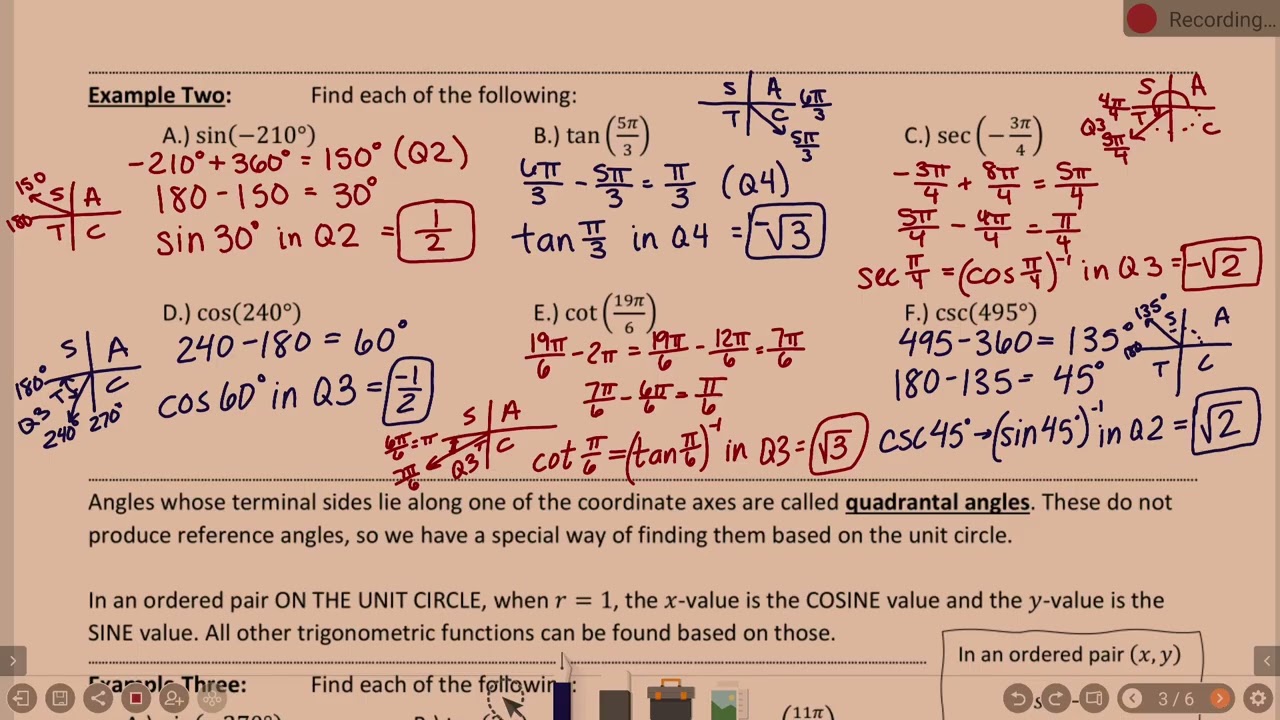 Recording...
Example Two: Find each of the following:
A.) sin(−210°)
-210° + 360° = 150° (Q2)
180 - 150 = 30°
sin 30° in Q2 = 1/2
150°
180
S A
T C
B.) tan(5π/3)
S A 6π/3
T C
5π/3
6π/3 - 5π/3 = π/3 (Q4)
tan π/3 in Q4 = -√3
C.) sec(−3π/4)
S A
4π/4 T C
Q3
5π/4
-3π/4 + 8π/4 = 5π/4
5π/4 - 4π/4 = π/4
sec π/4 = (cos π/4)⁻¹ in Q3 = -√2
D.) cos(240°)
240 - 180 = 60°
cos 60° in Q3 = -1/2
S A
180° T C
Q3 240° 270°
E.) cot(19π/6)
19π/6 - 2π = 19π/6 - 12π/6 = 7π/6
7π/6 - 6π/6 = π/6
cot π/6 = (tan π/6)⁻¹ in Q3 = √3
S A
6π/6 = π T C
7π/6 Q3
F.) csc(495°)
495 - 360 = 135°
180 - 135 = 45°
csc 45° → (sin 45°)⁻¹ in Q2 = √2
135°
S A
180
T C
Angles whose terminal sides lie along one of the coordinate axes are called quadrantal angles. These do not
produce reference angles, so we have a special way of finding them based on the unit circle.
In an ordered pair ON THE UNIT CIRCLE, when r = 1, the x-value is the COSINE value and the y-value is the
SINE value. All other trigonometric functions can be found based on those.
In an ordered pair (x, y)
Example Three: Find each of the following:
3 / 6
(11π